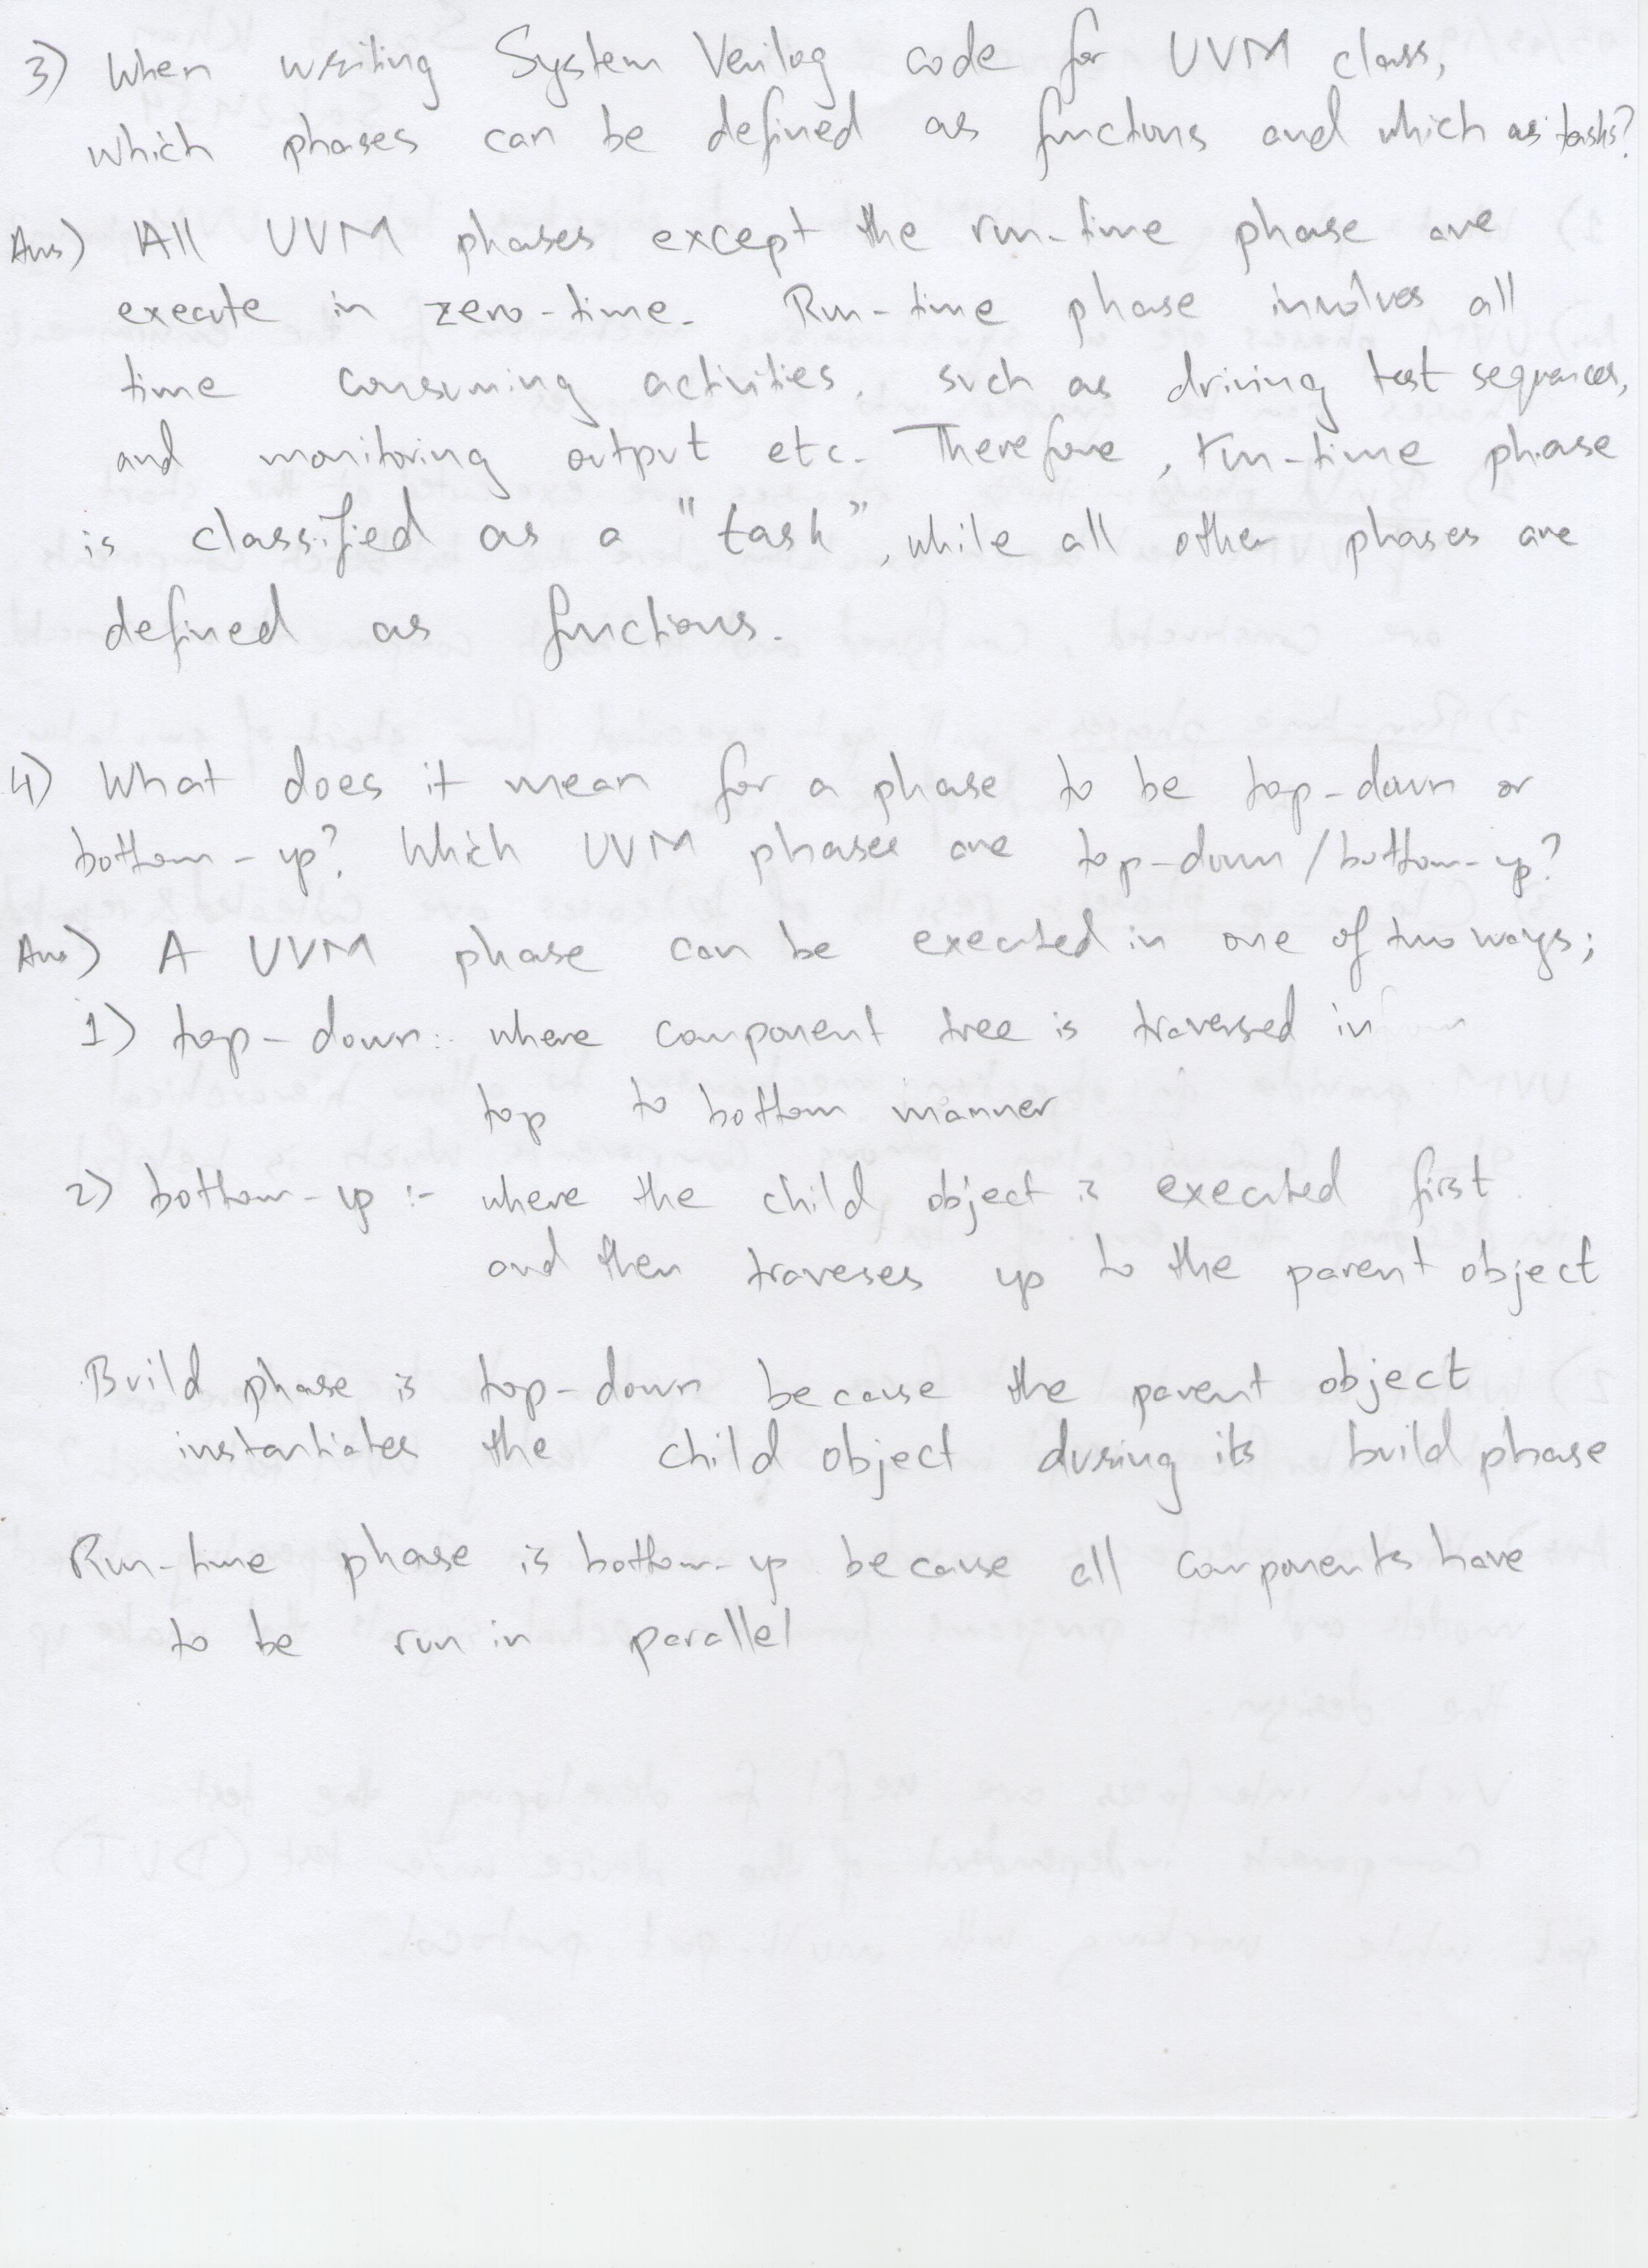 3) When writing System Verilog code for UVM class,
which phases can be defined as functions and which as tasks?
Ans) All UVM phases except the run-time phase are
execute in zero-time. Run-time phase involves all
time consuming activities, such as driving test sequences,
and monitoring output etc. Therefore, run-time phase
is classified as a "task", while all other phases are
defined as functions.
4) What does it mean for a phase to be top-down or
bottom-up? Which UVM phases are top-down/bottom-up?
Ans) A UVM phase can be executed in one of two ways;
1) top-down:- where component tree is traversed in
top to bottom manner
2) bottom-up :- where the child object is executed first
and then traveses up to the parent object
Build phase is top-down because the parent object
instantiates the child object during its build phase
Run-time phase is bottom-up because all components have
to be run in parallel